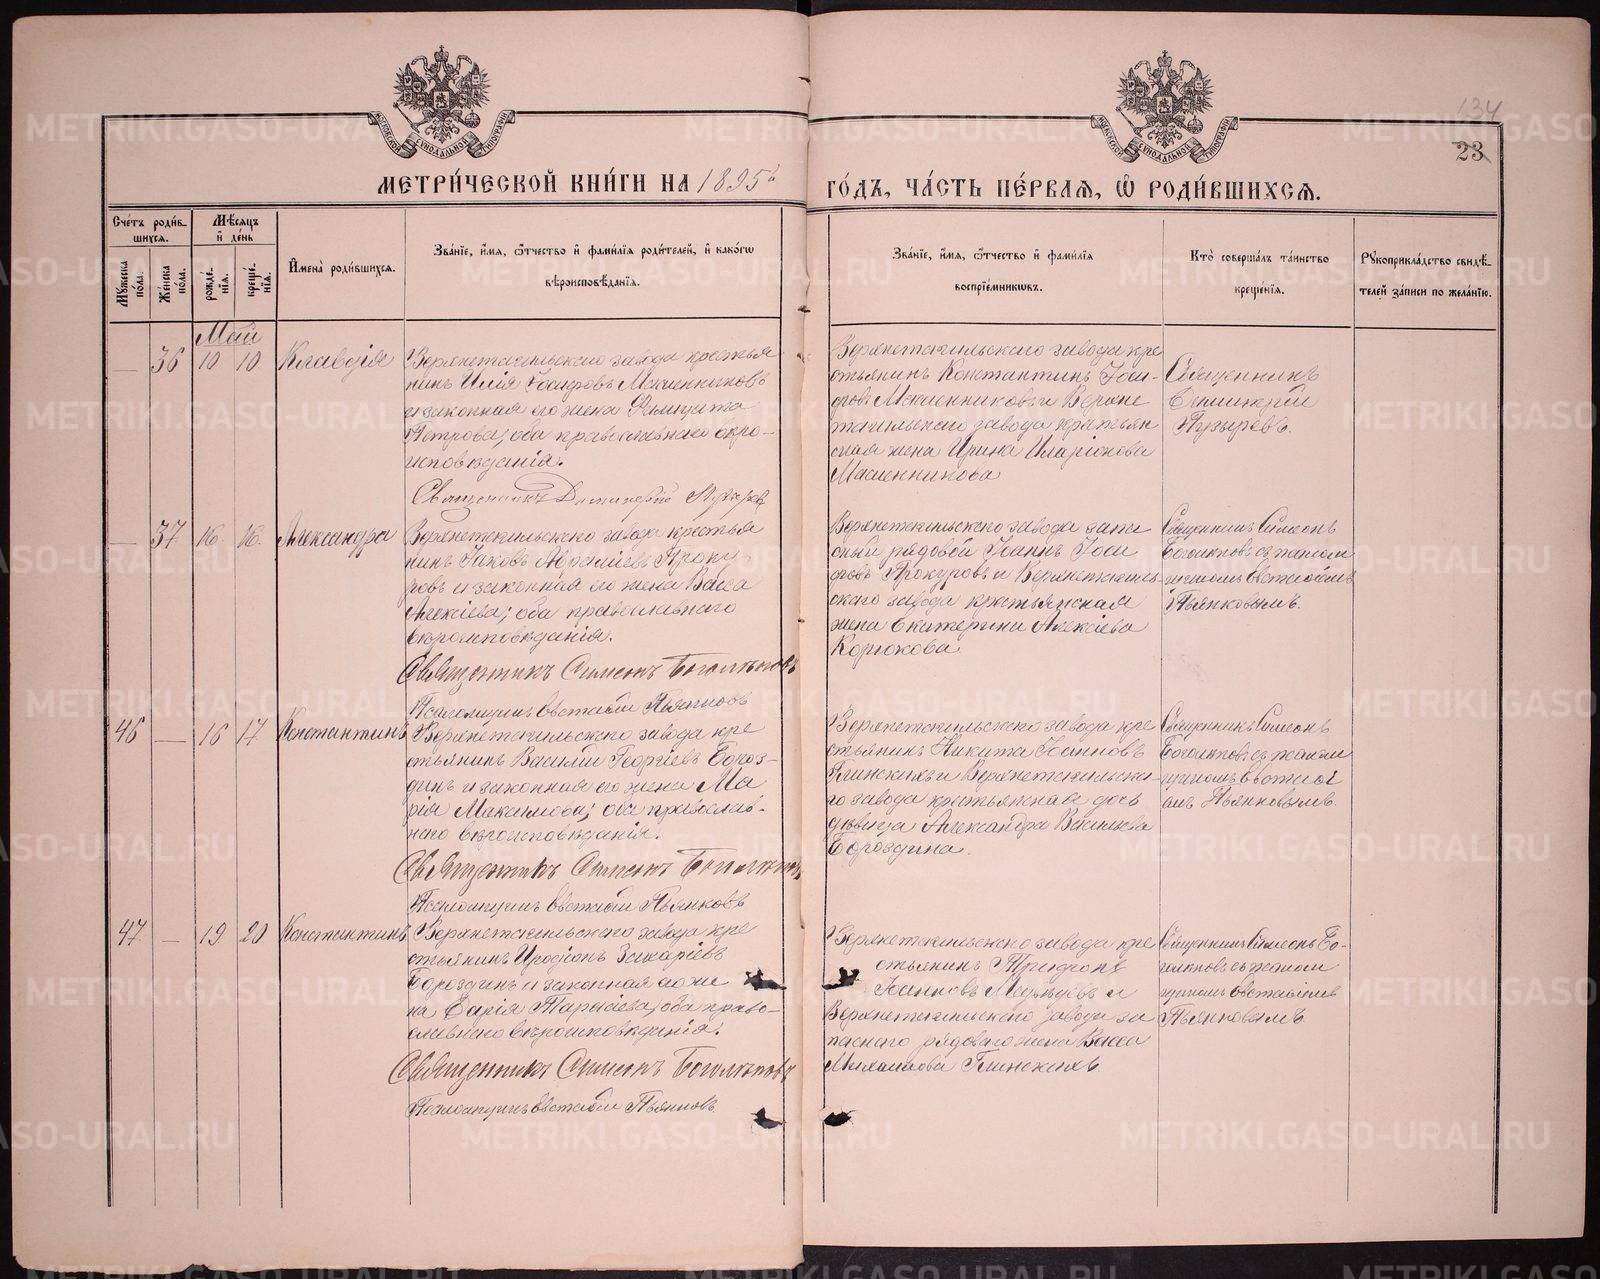 134
23
МОСКОВСКОЙ СѴНОДАЛЬНОЙ ТИПОГРАФІИ
МОСКОВСКОЙ СѴНОДАЛЬНОЙ ТИПОГРАФІИ
МЕТРИ́ЧЕСКОЙ КНИ́ГИ НА 1895й
ГО́ДЪ, ЧА́СТЬ ПЕ́РВАѦ, Ѡ҆ РОДИ́ВШИХСѦ.
Сче́тъ роди́в-
шихсѧ.
Мꙋжеска по́ла.
Же́нска по́ла.
Мѣ́сѧцъ
и҆ де́нь
рожде́нїѧ.
креще́нїѧ.
И҆мена̀ роди́вшихсѧ.
Зва́нїе, и҆́мѧ, ѻ҆́тчество и҆ фами́лїѧ роди́телей, и҆ како́гѡ
вѣроисповѣ́данїѧ.
Зва́нїе, и҆́мѧ, ѻ҆́тчество и҆ фами́лїѧ
воспрїе́мникѡвъ.
Кто̀ соверша́лъ та́инство
креще́нїѧ.
Рꙋкоприкла́дство свидѣ́-
телей за́писи по жела́нїю.
Май
— 36 10 10 Клавдія
Верхнетагильскаго завода крестья
нинъ Илія Іосифовъ Масленниковъ
и законная его жена
Петрова; оба православнаго вѣро-
исповѣданія.
Священникъ Димитрій Пузырев
Верхнетагильскаго завода кре
стьянинъ Константинъ Іоси-
фовъ Масленниковъ и Верхне
тагильскаго завода крестьян
ская жена Ирина Иларіонова
Масленникова
Священникъ
Димитрій
Пузыревъ.
— 37 16. 16. Александра
Верхнетагильскаго завода крестья
нинъ Іаковъ Проку
ровъ и законная его жена Васса
Алексіева; оба православнаго
вѣроисповѣданія.
Священникъ Симеонъ Боголѣповъ
Псаломщикъ Евстафій Пьянковъ
Верхнетагильскаго завода запа
сный рядовой Іоаннъ Іоси
фовъ Прокуровъ и Верхнетагиль-
скаго завода крестьянская
жена Екатерина Алексіева
Корюкова
Священникъ Симеонъ
Боголѣповъ съ псалом
щикомъ Евстафіемъ
Пьянковымъ.
46 — 16 17 Константинъ
Верхнетагильскаго завода кре
стьянинъ Василій Георгіевъ Бороз-
динъ и законная его жена Ма
рія Максимова; оба православ-
наго вѣроисповѣданія.
Священникъ Симеонъ Боголѣповъ
Псаломщикъ Евстафій Пьянковъ
Верхнетагильскаго завода кре
стьянинъ Никита Іоанновъ
Глинскихъ и Верхнетагильска-
го завода крестьянская дочь
дѣвица Александра Васильева
Бороздина.
Священникъ Симеонъ
Боголѣповъ съ псалом
щикомъ Евстафі
емъ Пьянковымъ.
47 — 19 20 Константинъ
Верхнетагильскаго завода кре
стьянинъ Иродіонъ Захаріевъ
Бороздинъ и законная его же
на Тарасіева; оба право-
славнаго вѣроисповѣданія.
Священникъ Симеонъ Боголѣповъ
Псаломщикъ Евстафій Пьянковъ
Верхнетагильскаго завода кре
стьянинъ Трифонъ
Іоанновъ и
Верхнетагильскаго завода за
паснаго рядоваго жена Васса
Михаилова Глинскихъ.
Священникъ Симеонъ Бо-
голѣповъ съ псалом
щикомъ Евстафіемъ
Пьянковымъ
METRIKI.GASO-URAL.RU